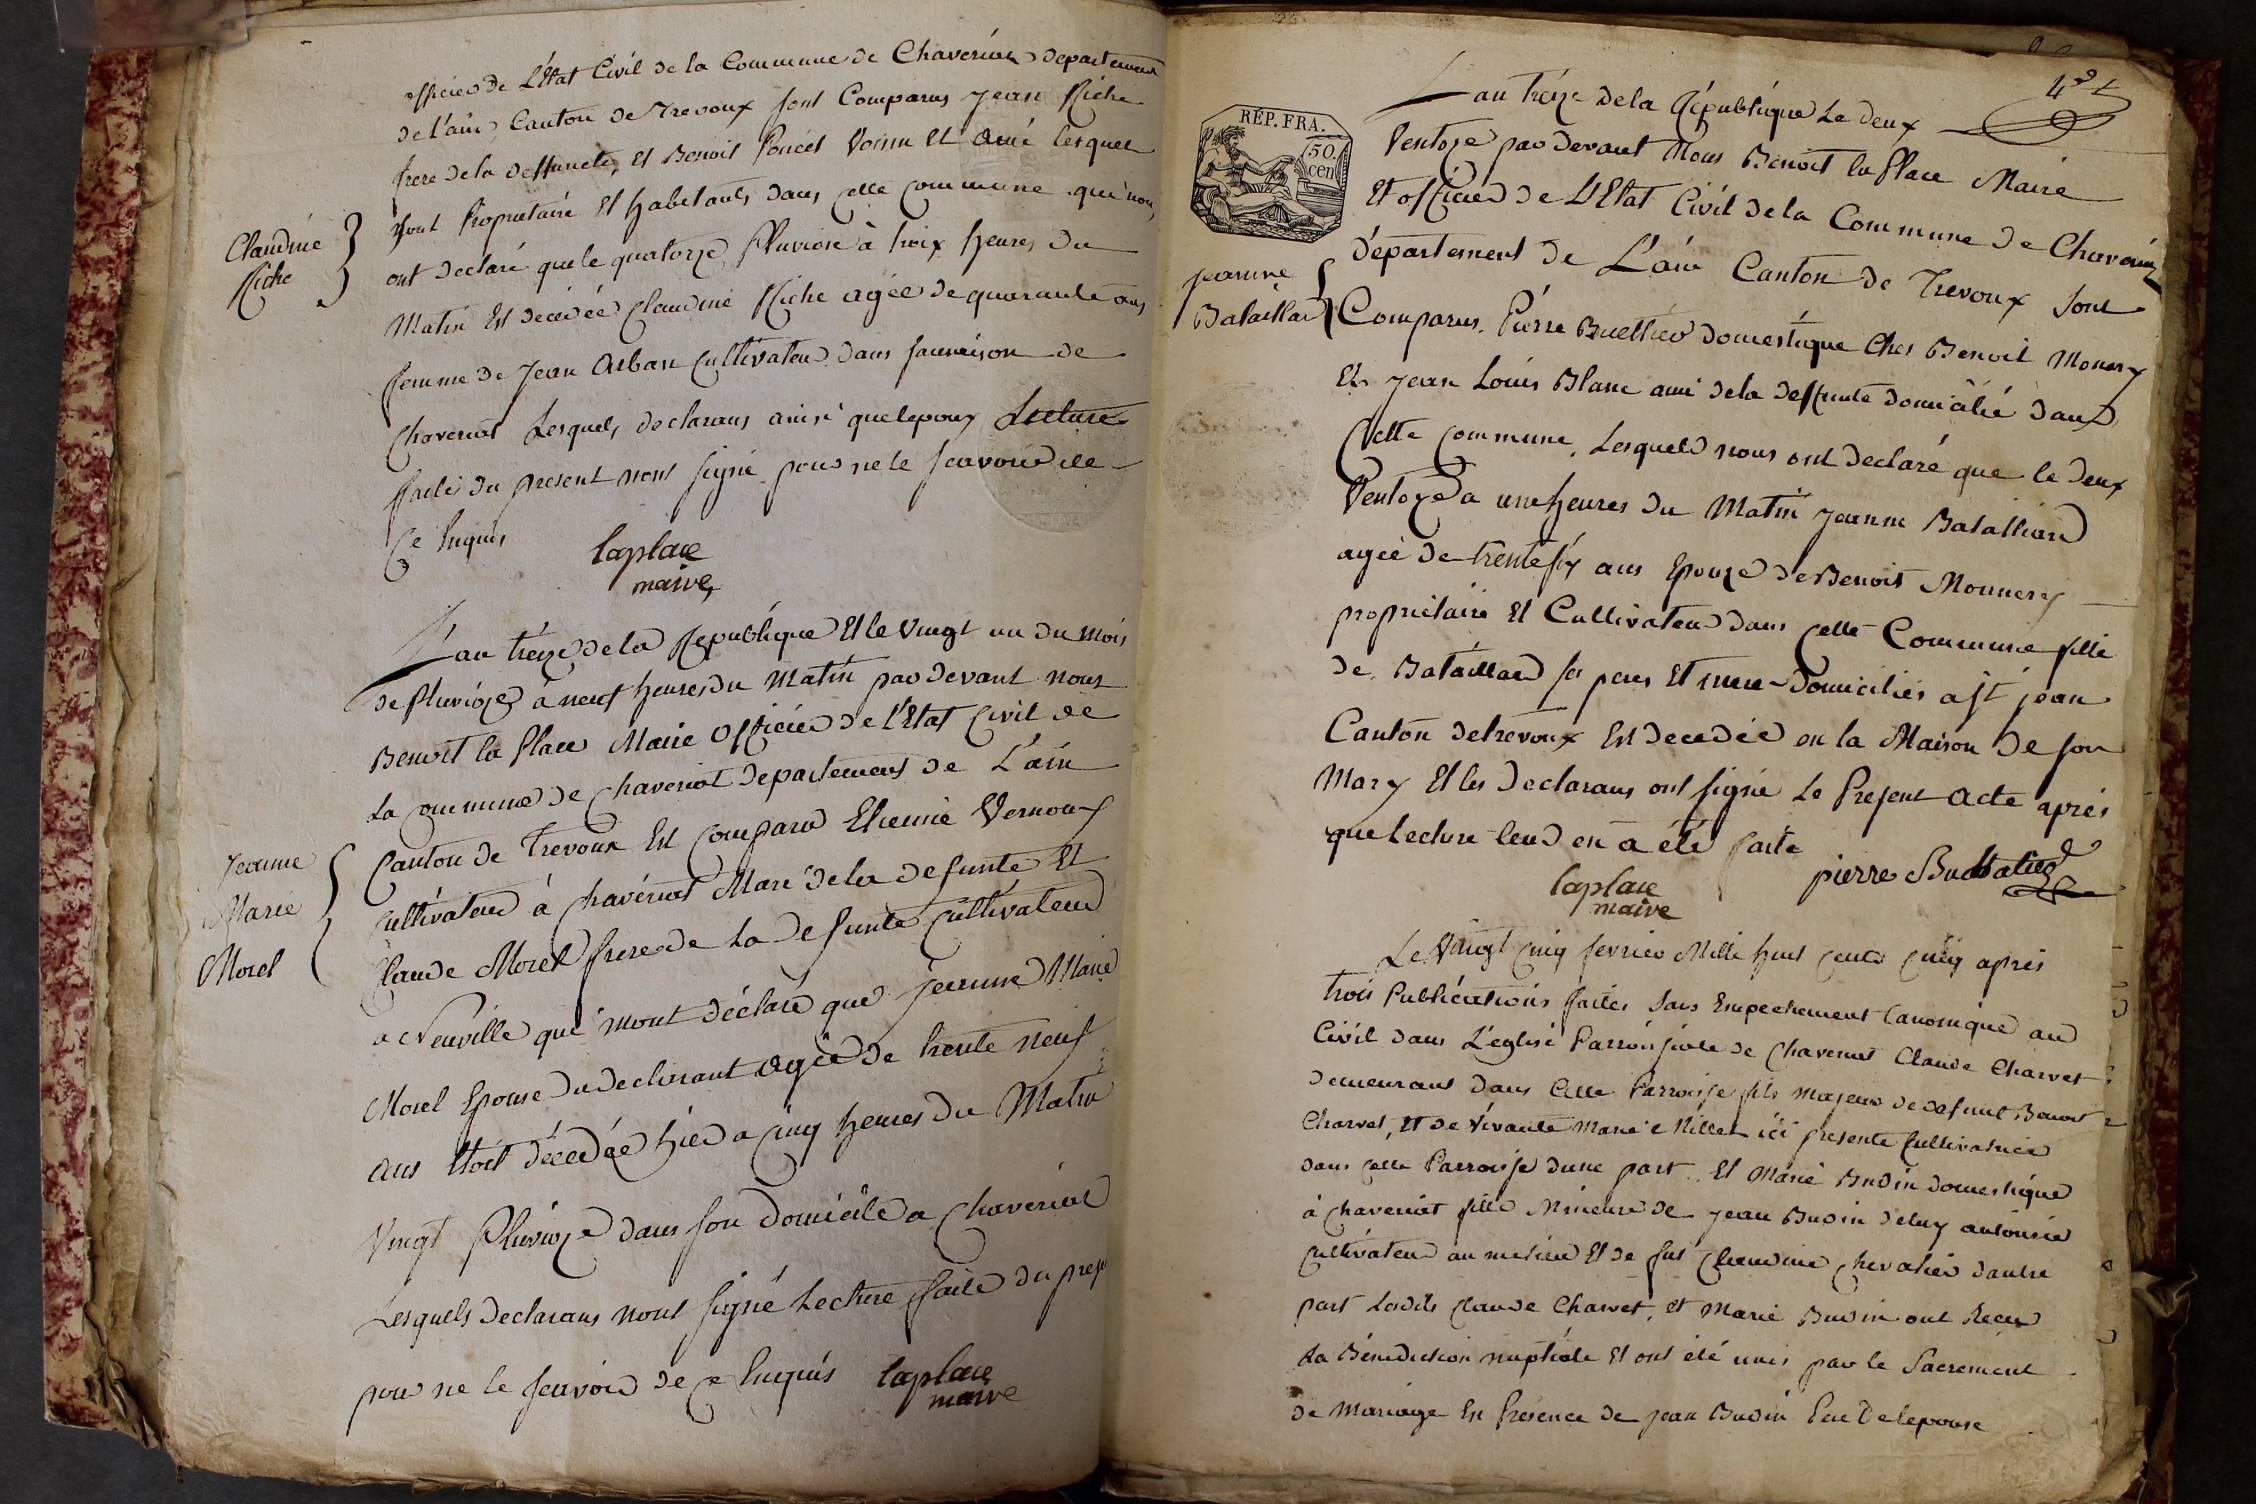 officier de L'Etat Civil de la Commune de Chaveriat departement
de l'ain Canton de Trevoux sont Comparus jean Riche
frere de la deffuncte, et Benoit Poncet Voisin et amé lesquels
sont Proprietaire et habitants dans cette commune qui nous
Claudine
Riche
ont declaré que le quatorze Pluviose à troix heures du
Matin Est decedée Claudine Riche agée de quarante ans
femme de jean Arban Cultivateur dans sa maison de
Chaveriat Lesquels declarans ainsi que lepoux Lecture
faite du present nont signé pour ne le scavoir de
Ce Enquis
laplace
maire
L'an treize de la Republique Et le Vingt un du mois
de Pluvioze à neuf heures du Matin par devant nous
Benoit la Place Maire Officier de l'Etat Civil de
La commune de Chaveriat departement de L'ain
Canton de Trevoux Est comparu Etienne Vernoux
Jeanne
Marie
Morel
Cultivateur à Chavériat Mari de la defunte Et
Claude Morel frere de La defunte Cultivateur
a Neuville qui mont déclaré que jeanne Marie
Morel Epouse du declarant agée de trente neuf
ans Etoit décedée hier a cinq heures du Matin
Vingt Pluvioze dans son domicile a Chaveriat
Lesquels declarans nont signé Lecture faite du prese
pour ne le scavoir de ce Enquis laplace
maire
4
L'an treize de la République Le deux
RÉP. FRA.
50.
cen
Ventoze par devant Nous Benoit la Place Maire
Et officier de L'Etat Civil de la Commune de Chaveriat
département de L'ain Canton de Trevoux sont
jeanne
Bataillar
Comparus. Piérre Buellier domestique Ches Benoit Monery
Et jean Louis Blanc ami de la deffunte domicilié dans
Cette Commune, Lesquels nous ont declaré que le deux
Ventoze a une heures du Matin jeanne Bataillard
agée de trente six ans Epouze de Benoit Monnery
propriétaire Et Cultivateur dans cette Commune fille
de Bataillard ses peres Et mere Domiciliés a St jean
Canton de trevoux Est decedée en la Maison de son
Mary Et les declarans ont signé Le Present acte aprés
que Lecture leur en a été faite
laplace
maire
pierre
Le Vingt Cinq fevrier Mille huit cents cinq aprés
trois Publications faites sans Empechement Canonique au
Civil dans L'eglise Parroissiale de Chaveriat Claude Charvet
demeurant dans Cette Parroisse fils majeur de defunt Benoit
Charvet, Et de Vivante Marie Millet ici presente Cultivatrice
dans cette Parroisse dune part. Et Marie Budin domestique
à Chaveriat fille Mineure de jean Budin de luy autorisée
Cultivateur au Et de fut Claudine Chevalier dautre
part Lesdits Claude Charvet, et Marie Budin ont Recu
La Bénédiction nuptiale Et ont été unis par le Sacrement
de Mariage En Présence de jean Budin Pere De lepouse